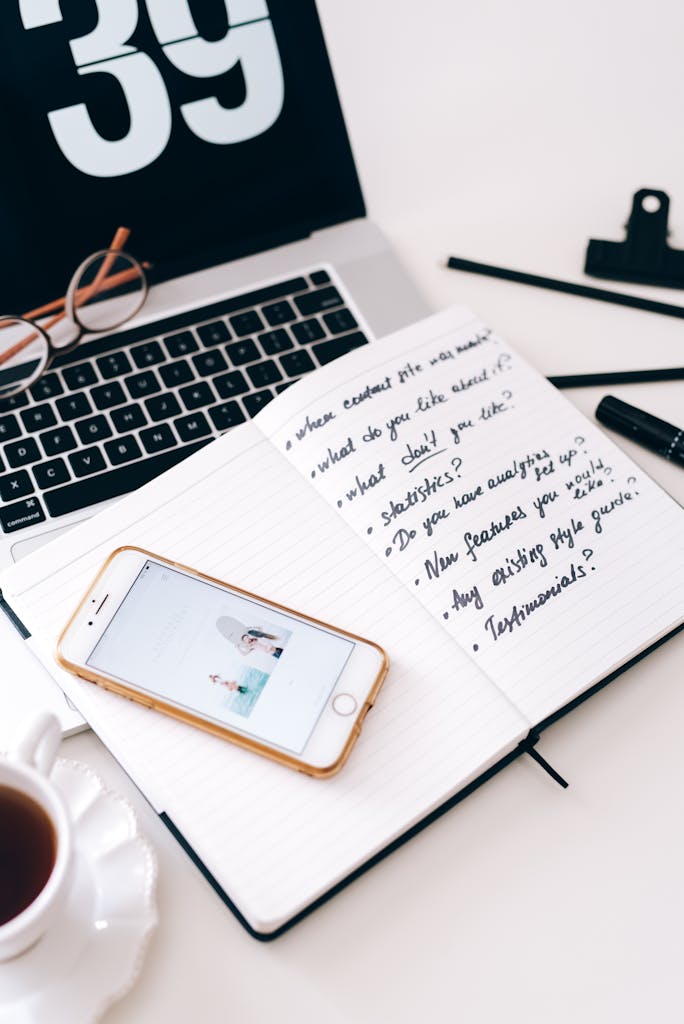 39
• When content site was made?
• What do you like about it?
• What don't you like?
• statistics?
• Do you have analytics set up?
• New features you would
like?
• Any existing style guide?
• Testimonials?
R
D F G H J K L
X C V B N M
command